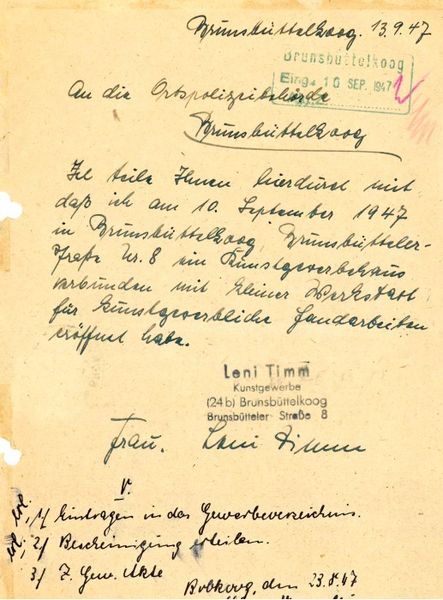 Brunsbüttelkoog. 13.9.47
Brunsbüttelkoog
Eing. 10 SEP. 1947
An die Ortspolizeibehörde
Brunsbüttelkoog
Ich teile Ihnen hierdurch mit
daß ich am 10. September 1947
in Brunsbüttelkoog Brunsbütteler-
straße Nr. 8 ein Kunstgewerbehaus
verbunden mit kleiner Werkstatt
für kunstgewerbliche Handarbeiten
eröffnet habe.
Leni Timm
Kunstgewerbe
(24b) Brunsbüttelkoog
Brunsbütteler Straße 8
Frau. Leni Timm
V.
erl. 1/ Eintragen in das Gewerbeverzeichnis.
erl. 2/ Bescheinigung erteilen.
3/ Z. Gew. Akte
Bbkoog, den 23.9.47